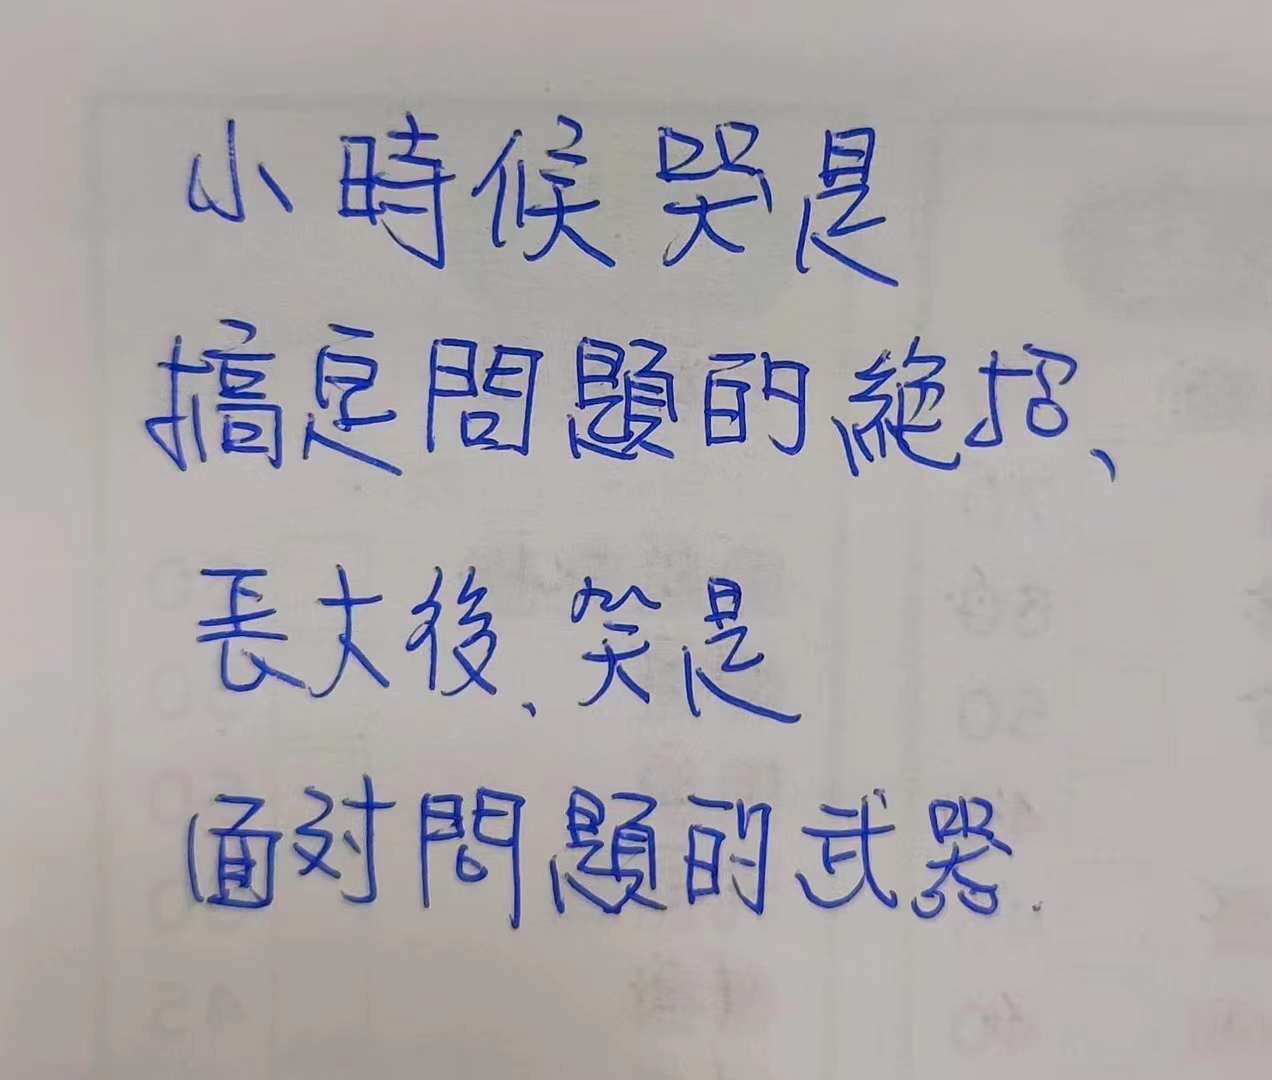 小時候哭是
搞定問題的絕招、
長大後、笑是
面对問題的武器.